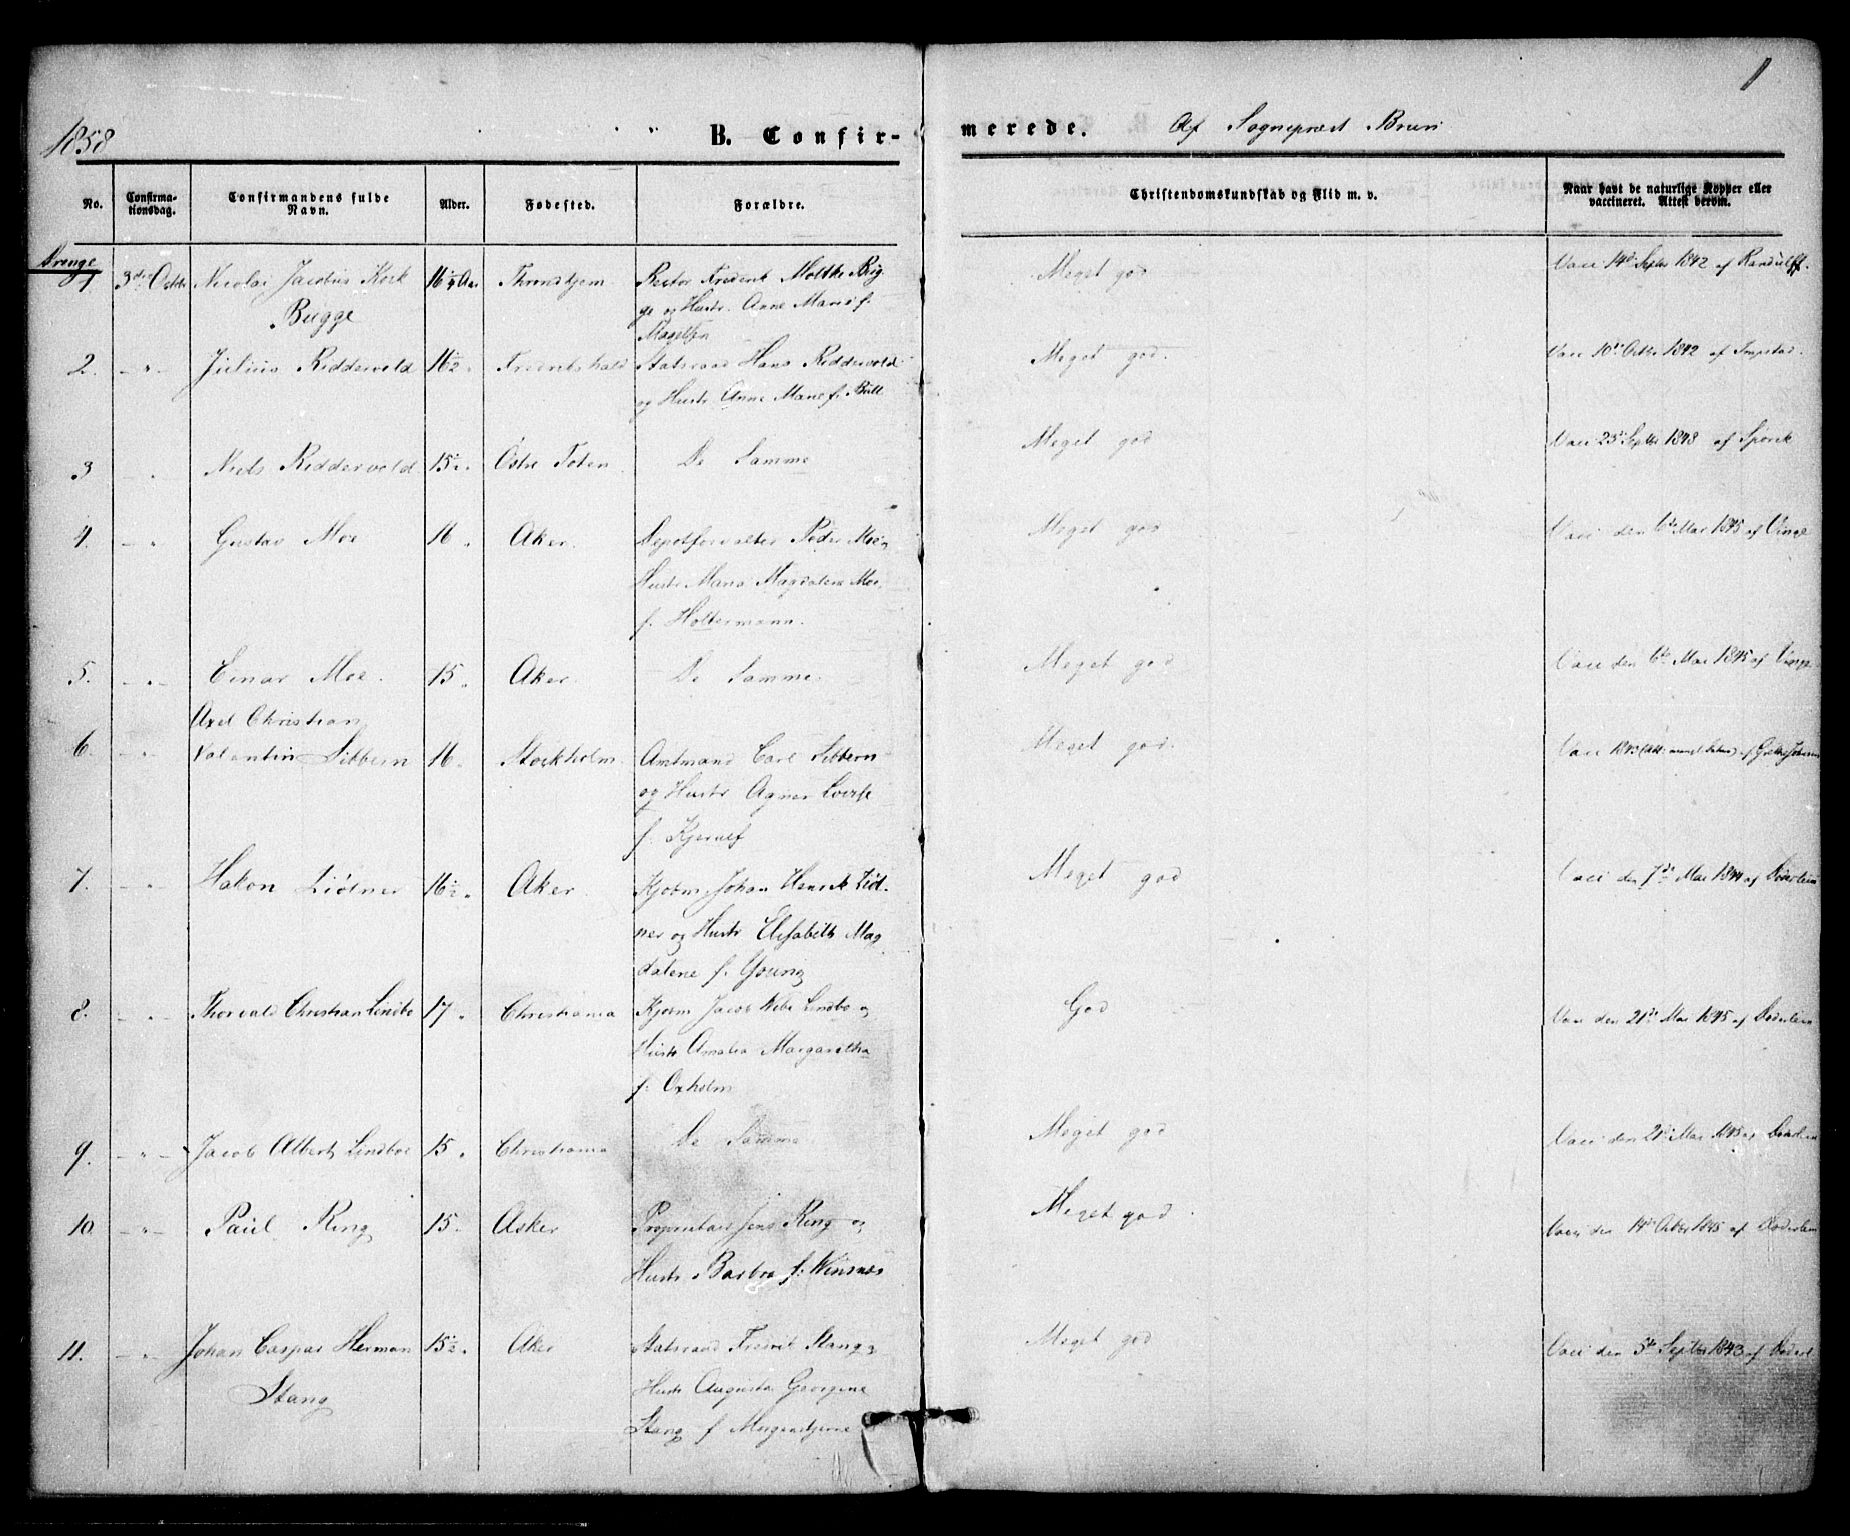 1
1858
B. Confir-merede.
Af Sognepræst Bruun
No.
Confirma-
tionsdag.
Confirmandens fulde
Navn.
Alder.
Fødested.
Forældre.
Christendomskundskab og Flid m. v.
Naar havt de naturlige Kopper eller
vaccineret. Attest derom.
Drenge
1 3die Octbr Nicolai Jacobus Kock 16 1/4 Aar Throndhjem Rector Frederik Moltke Bug- Meget god Vacc 14de Septbr 1842 af Randulff.
Bugge ge og Hustr. Anne Marie f.
Magelssen
2. - " - Julius Riddervold 16 1/2 " Fredrikshald Statsraad Hans Riddervold Meget god. Vacc 10de Octbr 1842 af Impstad.
og Hustr Anne Marie f. Bull
3 " Niels Riddervold 15 1/2 " Østre Toten De Samme Meget god Vacc 25de Septbr 1843 af Spørck
4. - " Gustav Moe 16 " Aker. Depotforvalter Peder Moe og Meget god Vacc den 6te Mai 1845 af Vinge
Hustr Maria Magdalena Moe
f. Holtermann.
5. - " - Einar Moe. 15 " Aker. De Samme. Meget god Vacc den 6te Mai 1845 af Vinge
Axel Christian
6. - " Valentin Sibbern 16. Stockholm. Amtmand Carl Sibbern Meget god. Vacc 1843
og Hustr Agnes Lovise
f. Kjerulf
7. - " Hakon Lidtner 16 1/2 " Aker. Kjøbm. Johan Henrik Lidt- Meget god Vacc den 7de Mai 1844 af Døderlein
ner og Hustr Elisabeth Mag
dalene f. Young
8. - " - Thorvald Christian Lindboe 17 " Christiania Kjøbm Jacob Wibe Lindbo og God Vacc den 21de Mai 1845 af Døderlein
Hustr Amalia Margaretha
f. Oxholm
9. - " - Jacob Albert Lindboe 15 " Christiania De Samme Meget god Vacc den 21de Mai 1845 af Døderlein
10. - " - Paul Ring 15. Asker Proprietair Jens Ring og Meget god. Vacc den 14de Octbr 1845 af Døderlein
Hustr Barbra f. Winsnes
11. - " - Johan Caspar Herman 15 1/2 " Aker Statsraad Fredrik Stang og Meget god Vacc den 5te Septbr 1843 af Døderl
Stang Hustr Augusta Georgine
Stang f Morgenstjerne